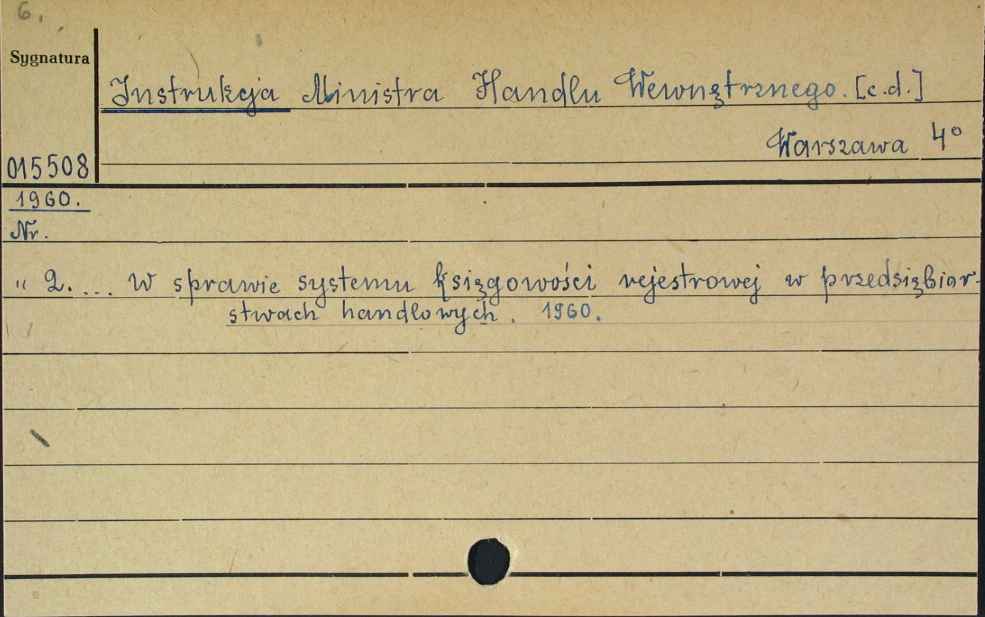 6.
Sygnatura
Instrukcja Ministra Handlu Wewnętrznego. [c.d.]
Warszawa 4°
015508
1960.
Nr.
" 2. ... W sprawie systemu księgowości rejestrowej w przedsiębior-
stwach handlowych. 1960.